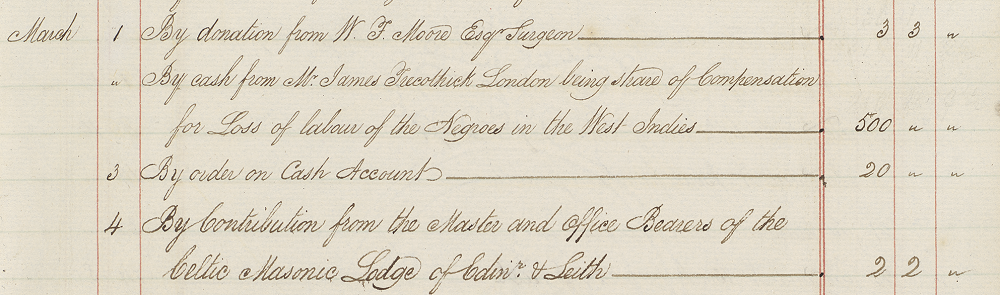 March 1 By donation from W. F. Moore Esqr Surgeon 3 3 "
" By cash from Mr James Trecothick London being share of Compensation
for Loss of labour of the Negroes in the West Indies 500 " "
3 By order on Cash Account 20 " "
4 By Contribution from the Master and Office Bearers of the
Celtic Masonic Lodge of Edinr. & Leith 2 2 "